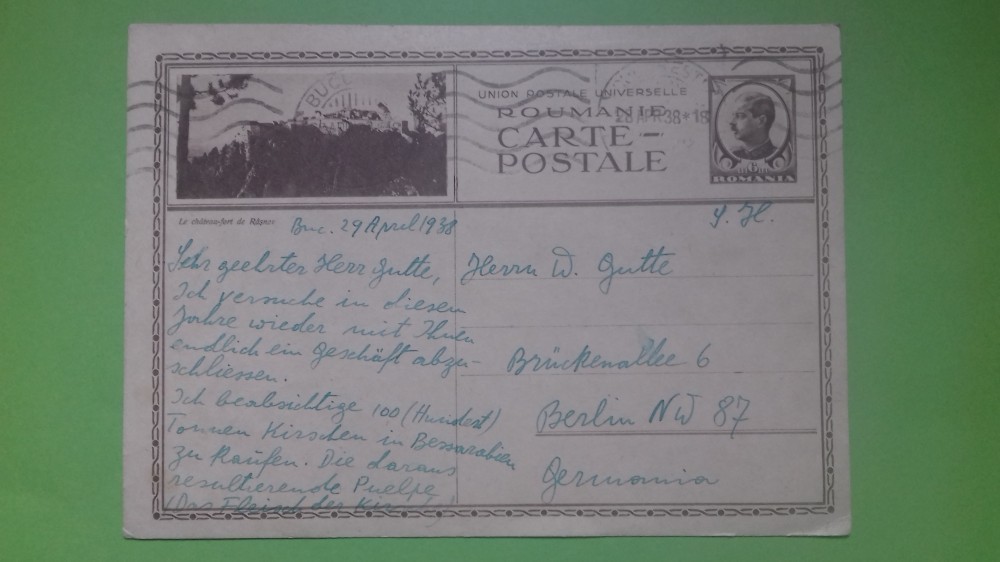 BUC
UNION POSTALE UNIVERSELLE
ROUMANIE
28 APR 38 * 18
CARTE-
POSTALE
6
ROMANIA
Le château-fort de Râşnov
Buc. 29 April 1938
S. H.
Sehr geehrter Herr Gutte,
Ich versuche in diesem
Jahre wieder mit Ihnen
endlich ein Geschäft abzu-
schliessen.
Ich beabsichtige 100 (Hundert)
Tonnen Kirschen in Bessarabien
zu kaufen. Die daraus
resultierende Puelpe
(Das Fleisch der
Herrn W. Gutte
Brückenallee 6
Berlin NW 87
Germania